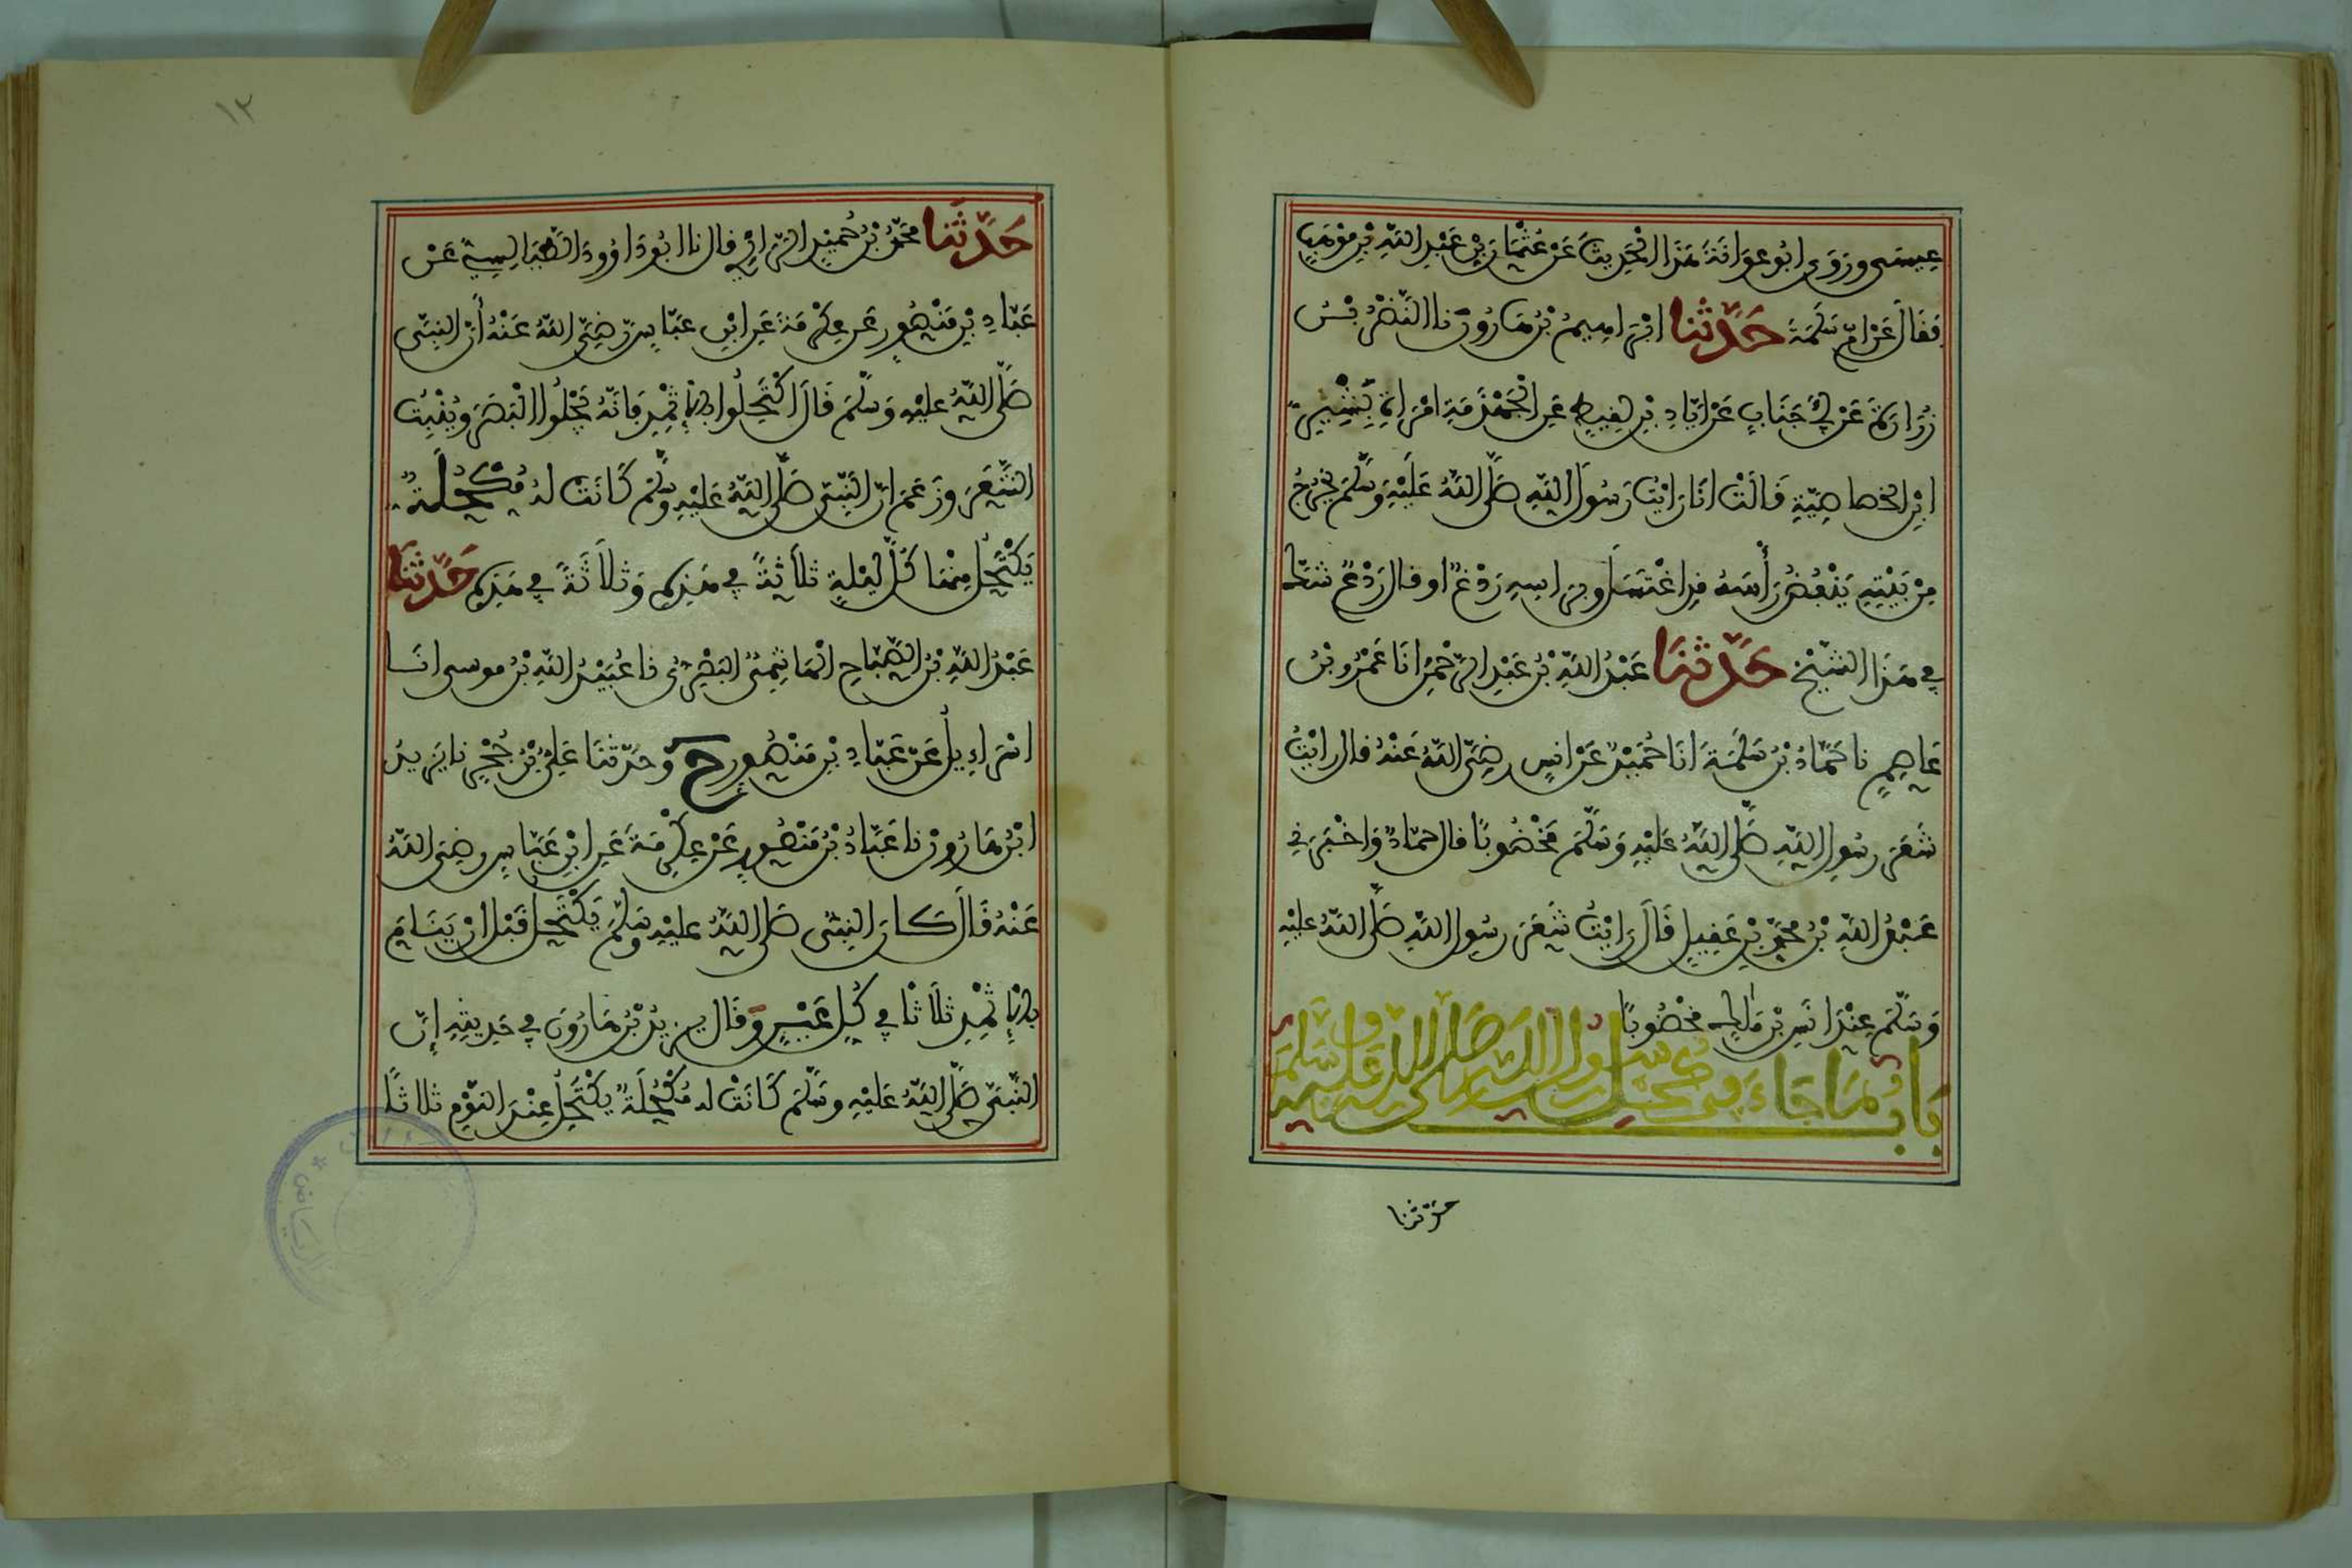 عِيسَى وَرَوَى ابُو عَوَانَةَ هَذَا الْحَدِيثَ عَنْ عُثْمَانَ بْنِ عَبْدِ اللَّهِ بْنِ مَوْهَبٍ
فَقَالَ عَنْ امِّ سَلَمَةَ حَدَّثَنَا ابْرَاهِيمُ بْنُ هَارُونَ نا النَّضْرُ بْنُ
زُرَارَةَ عَنْ أَبِي جَنَابٍ عَنْ ايَادِ بْنِ لَقِيطٍ عَنِ الْجَهْذَمَةِ امْرَاةِ بَشِيرِ
ابْنِ الخصاصِيَّةِ قَالَتْ انَا رَايْتُ رَسُولَ اللَّهِ صَلَّى اللَّهُ عَلَيْهِ وَسَلَّمَ يَخْرُجُ
مِنْ بَيْتِهِ يَنْفُضُ رَأْسَهُ قَدِ اغْتَسَلَ وبِرَاسِهِ رَدْغٌ او قال رَدْعٌ شَكَّ
فِي هَذَا الشَّيْخُ حَدَّثَنَا عَبْدُ اللَّهِ بْنُ عَبْدِ الرَّحْمَنِ انَا عَمْرُو بْنُ
عَاصِمٍ نا حَمَّادُ بْنُ سَلَمَةَ انَا حُمَيْدٌ عَنْ انَسٍ رَضِيَ اللَّهُ عَنْهُ قال رايْتُ
شَعَرَ رسُولِ اللَّهِ صَلَّى اللَّهُ عَلَيْهِ وَسَلَّمَ مَخْضُوبًا قال حمّادٌ وَاخْبَرَنِي
عَبْدُ اللَّهِ بْنُ مُحَمَّدِ بْنِ عَقِيلٍ قَالَ رَايْتُ شَعَرَ رسُولِ اللَّهِ صَلَّى اللَّهُ عليْهِ
وَسَلَّمَ عِنْدَ انَسِ بْنِ مَالِكٍ مَخْضُوبًا
بَابُ مَا جَاءَ فِي كُحْلِ رَسُولِ اللَّهِ صَلَّى اللَّهُ عَلَيْهِ وَسَلَّمَ
حدّثنا
١٢
حَدَّثَنَا مُحَمَّدُ بْنُ حُمَيْدٍ الرَّازِي قال نا ابُو دَاوُودَ الطَّيَالِسِيُّ عَنْ
عَبَّادِ بْنِ مَنْصُورٍ عَنْ عِكْرِمَةَ عَنِ ابْنِ عَبَّاسٍ رَضِيَ اللَّهُ عَنْهُ أَنَّ النَّبِيَّ
صَلَّى اللَّهُ عليْهِ وَسَلَّمَ قَالَ اكْتَحِلُوا بِالإِثْمِدِ فَانَّهُ يَجْلُوا الْبَصَرَ وَيُنْبِتُ
الشَّعَرَ وَزَعَمَ انَّ النَّبِيَّ صَلَّى اللَّهُ عَلَيْهِ وَسَلَّمَ كَانَتْ لَهُ مُكْحُلَةٌ
يَكْتَحِلُ مِنْهَا كُلَّ لَيْلَةٍ ثَلَاثَةً فِي هَذِهِ وَثَلَاثَةً فِي هَذِهِ حَدَّثَنَا
عَبْدُ اللَّهِ بْنُ الصَّبَّاحِ الْهَاشِمِيُّ الْبَصْرِيُّ نا عُبَيْدُ اللَّهِ بْنُ موسى انَا
اسْرَاءِيلُ عَنْ عَبَّادِ بْنِ مَنْصُورٍ ح وَحَدَّثَنَا عَلِيُّ بْنُ حُجْرٍ نا يَزِيدُ
ابْنُ هَارُونَ نا عَبَّادُ بْنُ مَنْصُورٍ عَنْ عِكْرِمَةَ عَنِ ابْنِ عَبَّاسٍ رضِيَ اللَّهُ
عَنْهُ قَالَ كَانَ النَّبِيُّ صَلَّى اللَّهُ عَلَيْهِ وَسَلَّمَ يَكْتَحِلُ قَبْلَ انْ يَنَامَ
بِالإِثْمِدِ ثَلَاثًا فِي كُلِّ عَيْنٍ وَقَالَ يَزِيدُ بْنُ هَارُونَ فِي حَدِيثِهِ إِنَّ
النَّبِيَّ صَلَّى اللَّهُ عَلَيْهِ وَسَلَّمَ كَانَتْ لَهُ مُكْحُلَةٌ يَكْتَحِلُ عِنْدَ النَّوْمِ ثَلَاثًا
الرياض